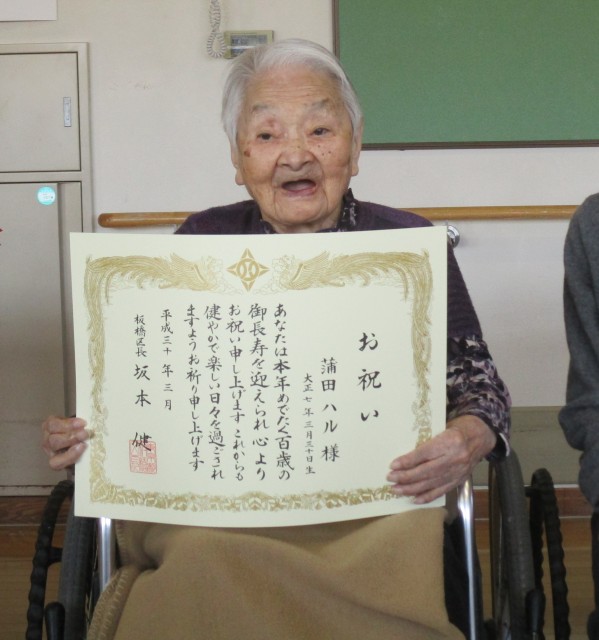 お祝い
蒲田 ハル 様
大正七年三月三十日生
あなたは本年めでたく百歳の
御長寿を迎えられ心より
お祝い申し上げます これからも
健やかで楽しい日々を過ごされ
ますようお祈り申し上げます
平成三十年三月
板橋区長 坂本 健